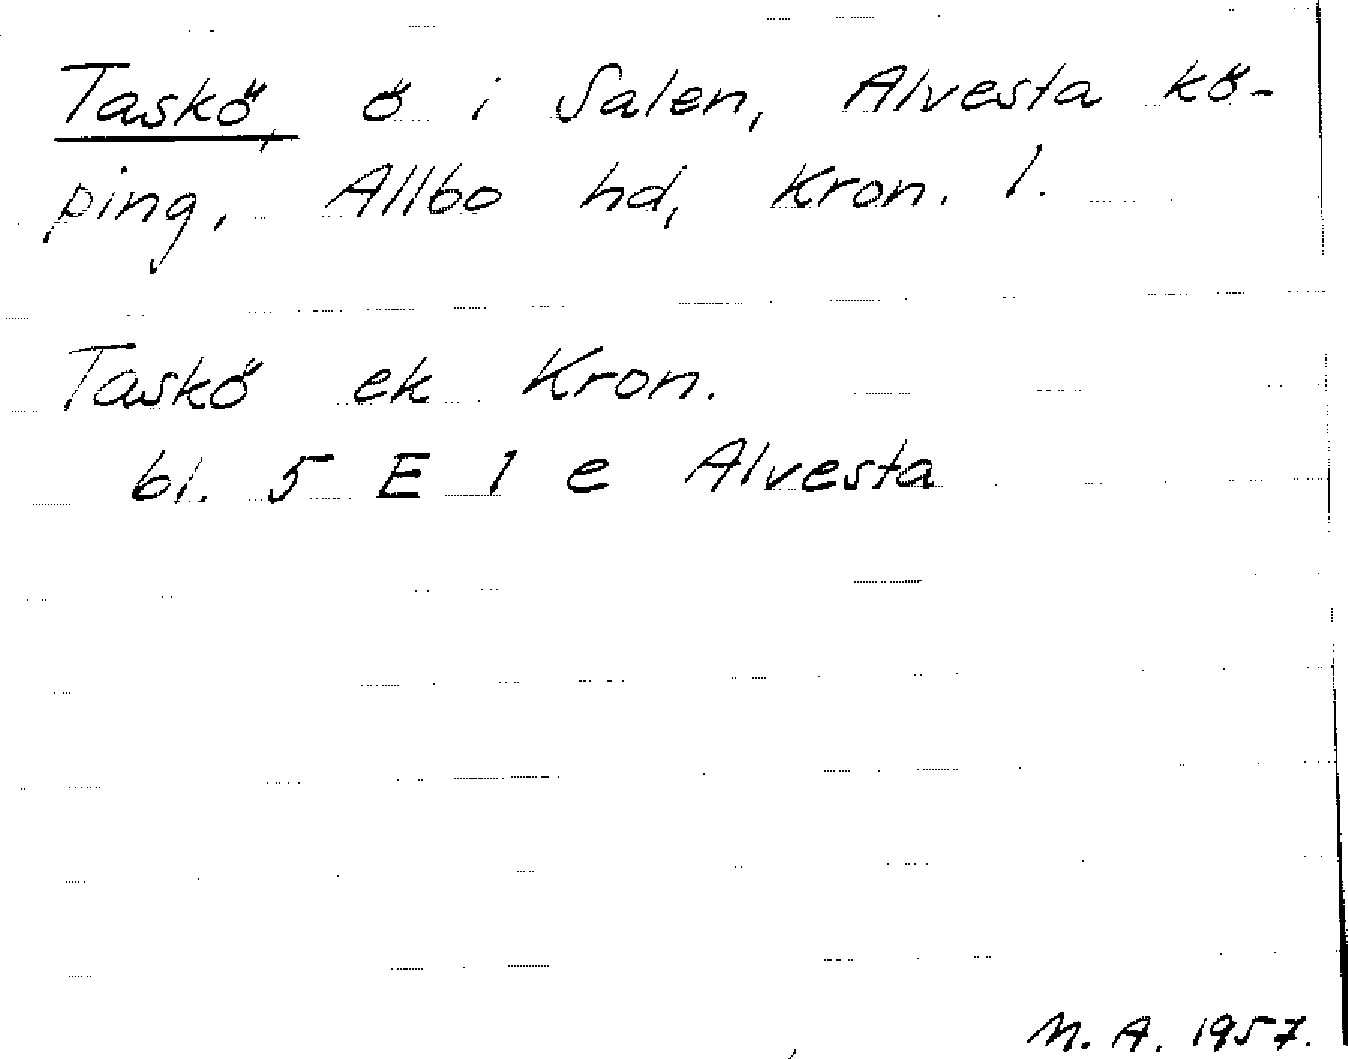 Taskö, ö i Salen, Alvesta kö-
ping, Allbo hd, Kron. l.
Taskö ek Kron.
bl. 5 E 1 e Alvesta
M. A. 1957.